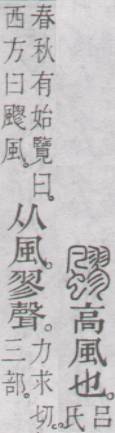 飂高風也。呂氏
春秋有始覽曰。西方曰飂風。从風。翏聲。力求切。三部。